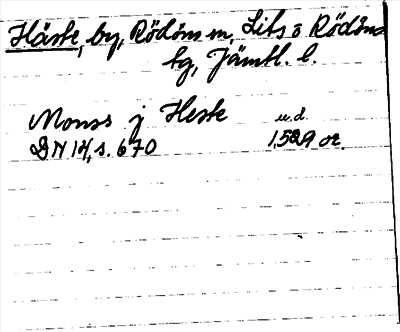 Häste, by, Rödöns sn, Lits o Rödöns
tg, Jämtl. l.
Monss j Heste u.d.
DN 14, s. 670 1529 or.